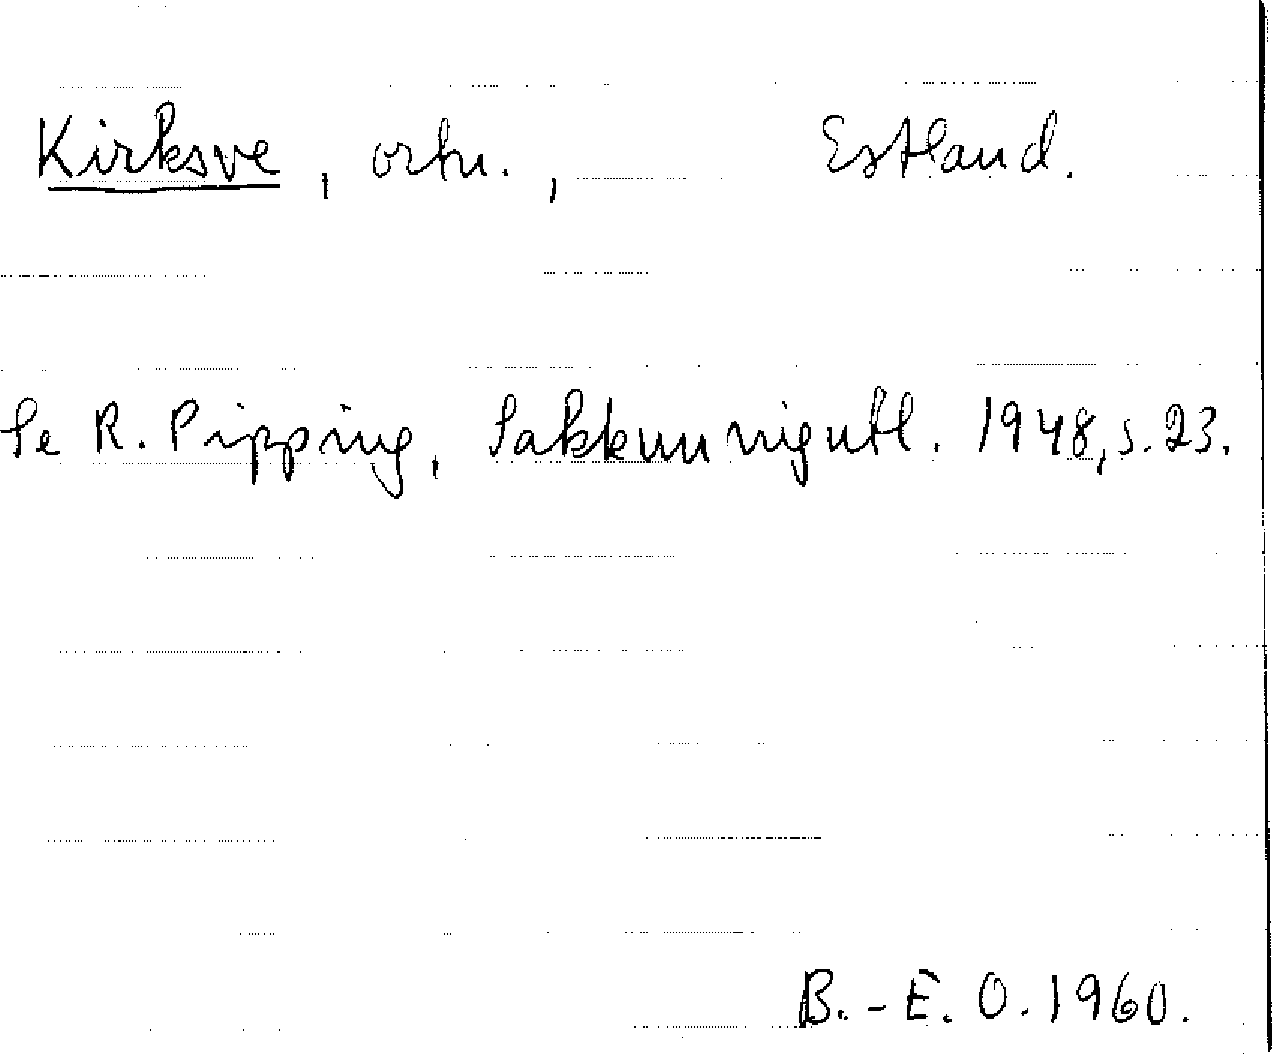 Kirksve, ortn., Estland.
Se R. Pipping, Sakkunnigutl. 1948, s. 23.
B.-E. O. 1960.